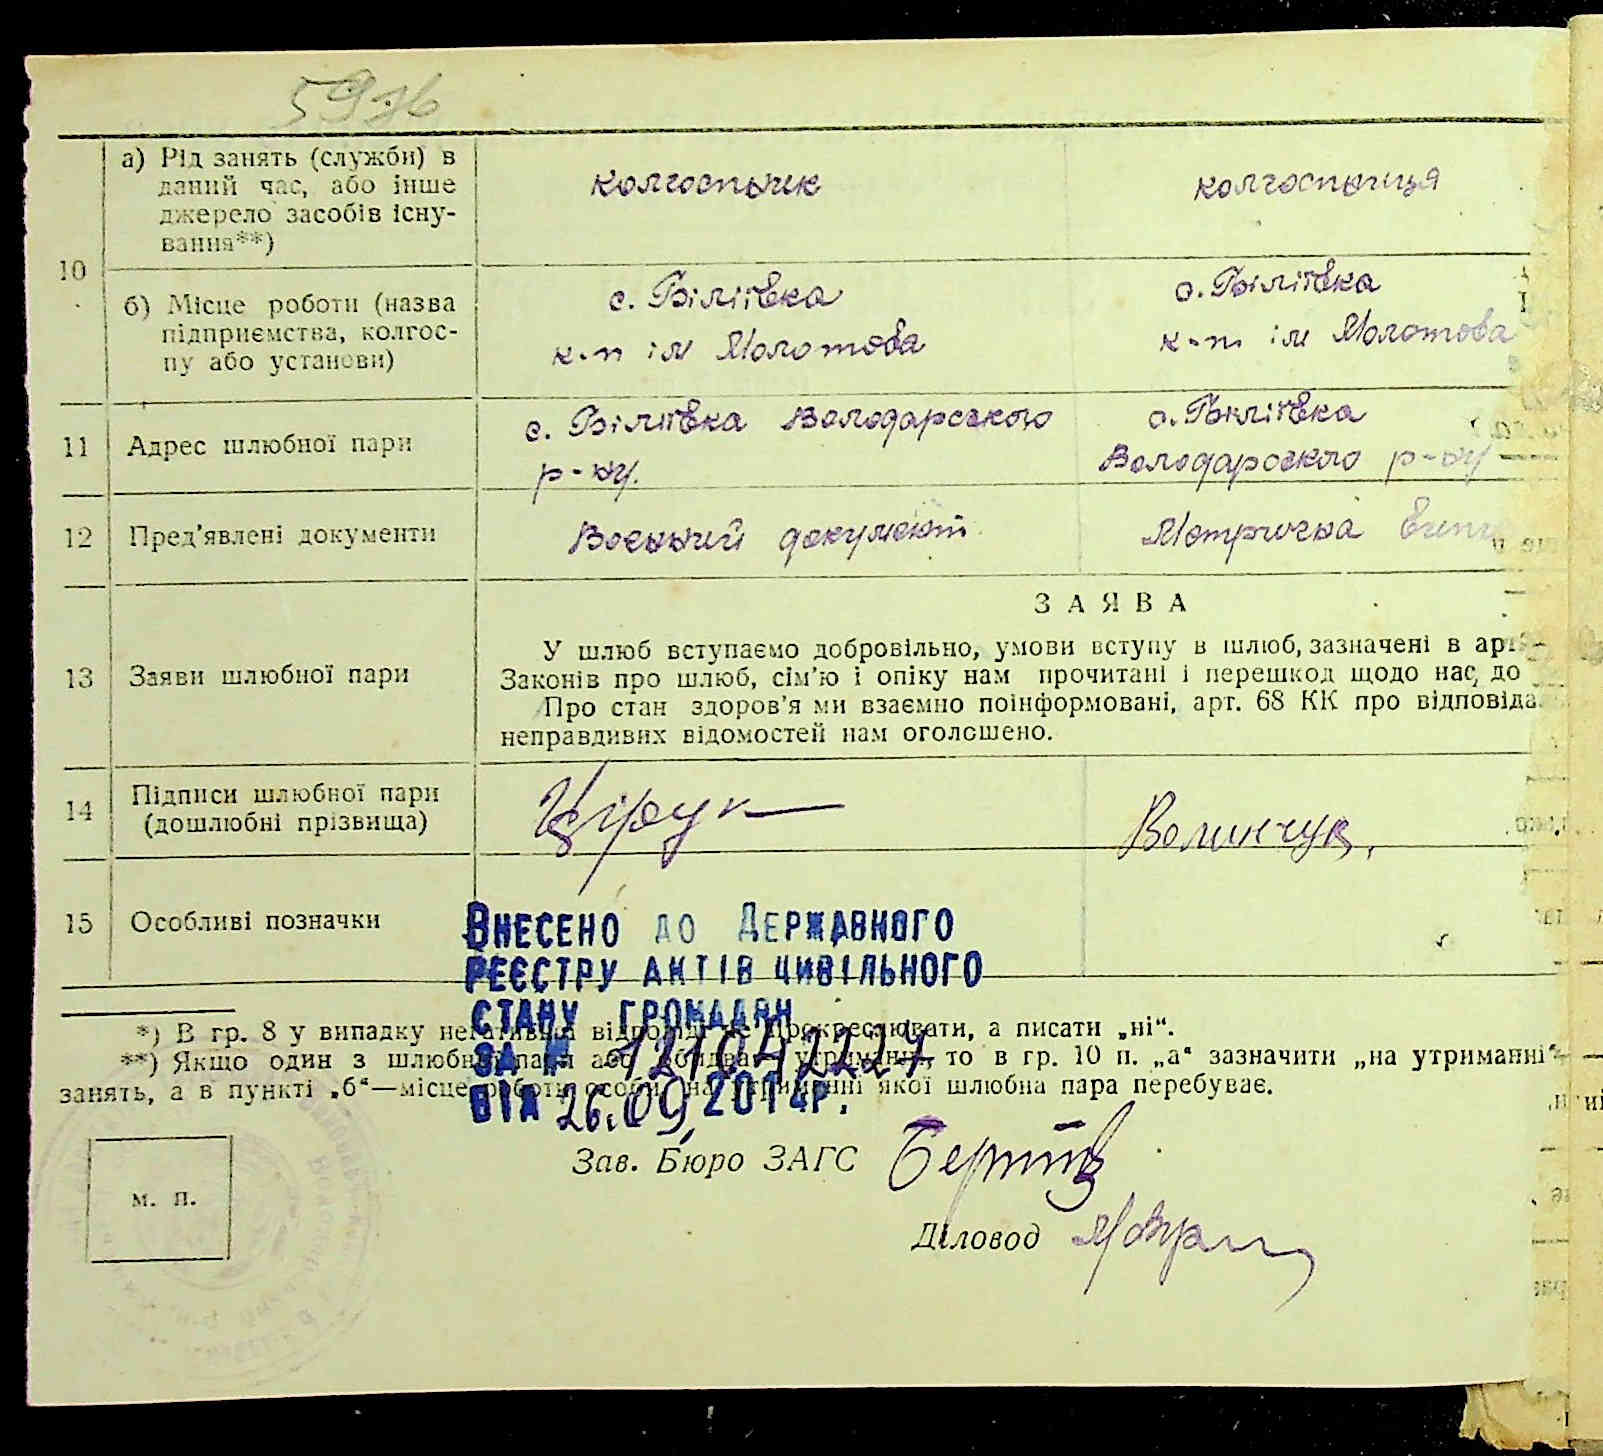 59зв
а) Рід занять (служби) в
даний час, або інше
джерело засобів існу-
вання**)
колгоспник
колгоспниця
10
б) Місце роботи (назва
підприємства, колгос-
пу або установи)
с. Біліївка
к-п ім Молотова
с. Біліївка
к-п ім Молотова
11
Адрес шлюбної пари
с. Біліївка Володарського
р-ну.
с. Біліївка
Володарського р-ну
12
Пред'явлені документи
Воєнний документ
Метрична
13
Заяви шлюбної пари
ЗАЯВА
У шлюб вступаємо добровільно, умови вступу в шлюб, зазначені в арт
Законів про шлюб, сім'ю і опіку нам прочитані і перешкод щодо нас, до
Про стан здоров'я ми взаємно поінформовані, арт. 68 КК про відповіда
неправдивих відомостей нам оголошено.
14
Підписи шлюбної пари
(дошлюбні прізвища)
15
Особливі позначки
Внесено до Державного
реєстру актів цивільного
стану громадян
за № 121042227
від 26.09. 2014р.
*) В гр. 8 у випадку негативної відповіді не прокреслювати, а писати „ні“.
**) Якщо один з шлюбної пари або обидва на утриманні, то в гр. 10 п. „а“ зазначити „на утриманні“
занять, а в пункті „б“—місце роботи особи, на утриманні якої шлюбна пара перебуває.
м. п.
Зав. Бюро ЗАГС
Діловод